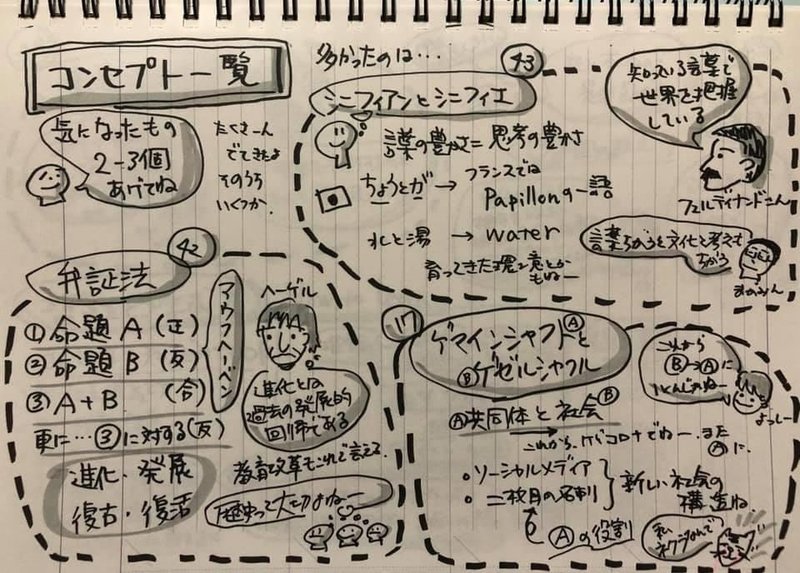 コンセプト一覧
気になったもの
2-3個
あげてね
たくさーん
でてきたよ
そのうち
いくつか.
多かったのは…
43
シニフィアンとシニフィエ
言葉の豊かさ=思考の豊かさ
ちょうとガ→フランスでは
Papillonの一語
水と湯→water
育ってきた環境とかも
もねー
知っている言葉で
世界を把握
している
フェルディナンドさん
言葉ちがうと文化と考えも
ちがう
42
弁証法
① 命題 A (正)
② 命題 B (反)
③ A+B (合)
更に…③に対する(反)
進化・発展
復古・復活
アウフヘーベン
ヘーゲル
進化とは
過去の発展的
回帰である
教育改革もこれで言える.
歴史って大切よねー
17
ゲマインシャフトⒶと
Ⓑゲゼルシャフト
Ⓐ共同体と社会Ⓑ
これから
Ⓑ→Ⓐに
よっしー
・ソーシャルメディア
・二枚目の名刺
新しい社会の
構造ね.
Ⓐの役割